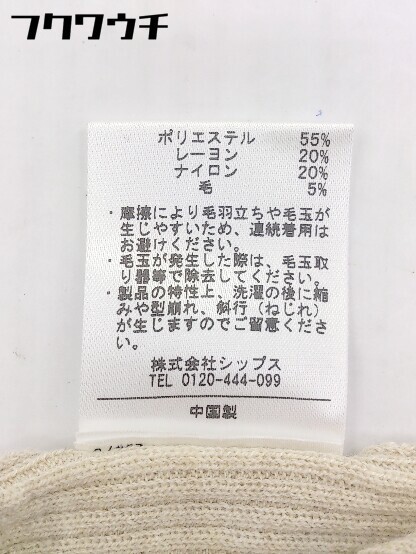 フクワウチ
ポリエステル 55%
レーヨン 20%
ナイロン 20%
毛 5%
・摩擦により毛羽立ちや毛玉が
生じやすいため、連続着用は
お避けください。
・毛玉が発生した際は、毛玉取
り器等で除去してください。
・製品の特性上、洗濯の後に縮
みや型崩れ、斜行(ねじれ)
が生じますのでご留意くださ
い。
株式会社シップス
TEL 0120-444-099
中国製